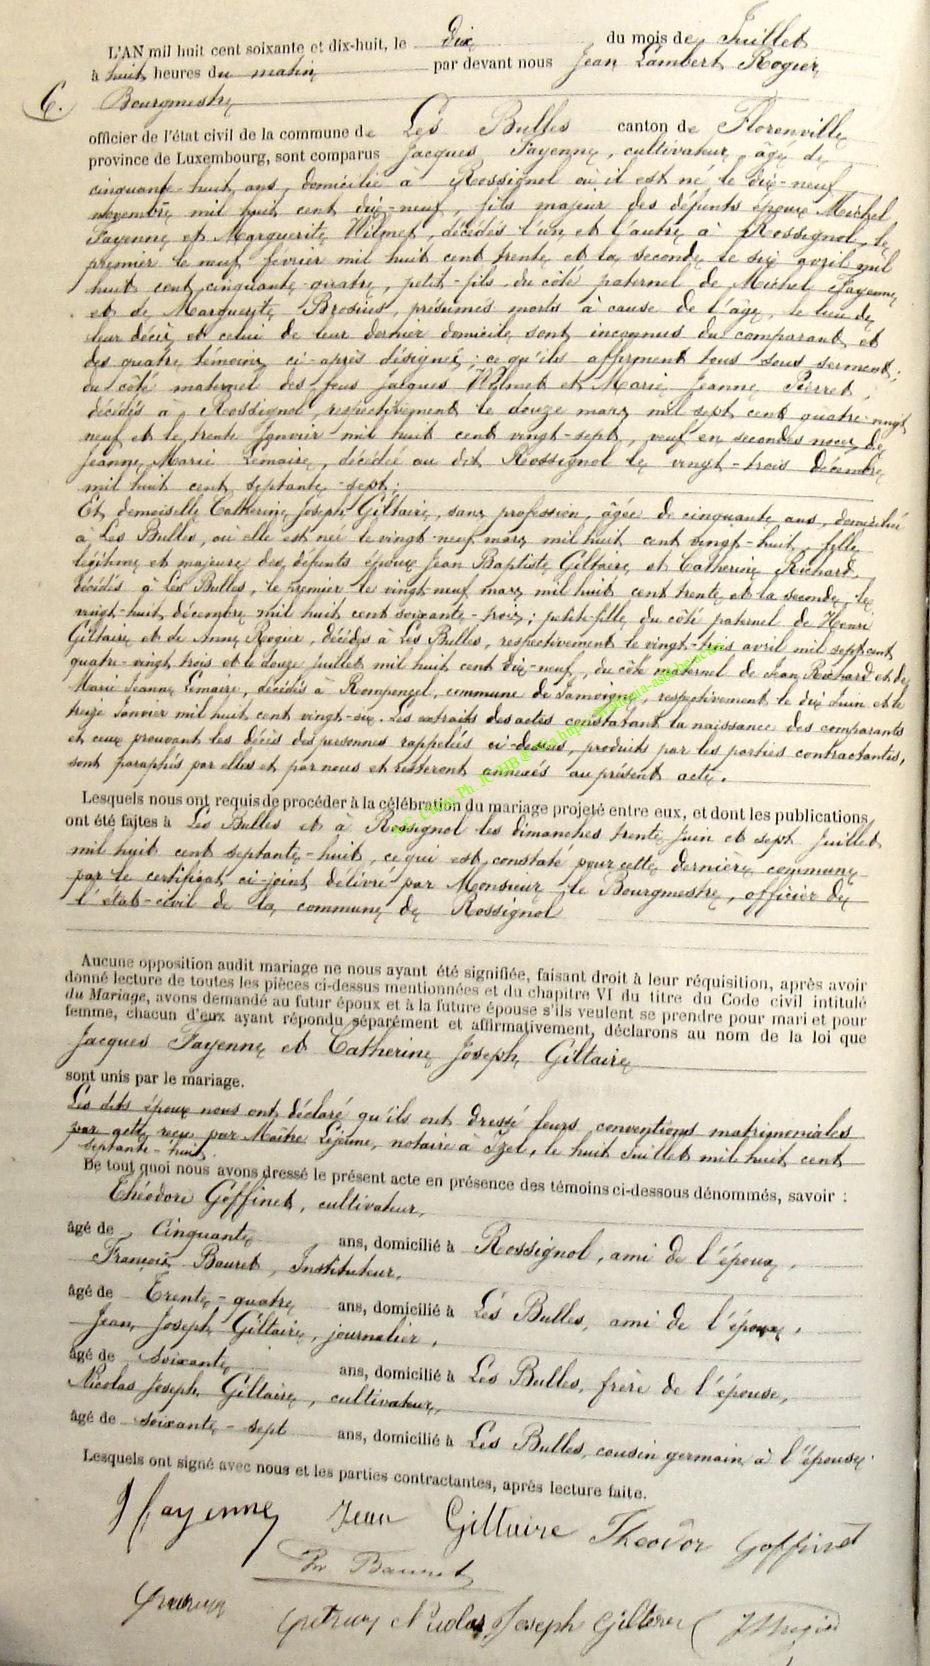 L'AN mil huit cent soixante et dix-huit, le dix du mois de Juillet
à huit heures du matin par devant nous Jean Lambert Rogier
6. Bourgmestre
officier de l'état civil de la commune de Les Bulles canton de Florenville
province de Luxembourg, sont comparus Jacques Fayenne, cultivateur, âgé de
cinquante-huit ans, domicilié à Rossignol où il est né le dix-neuf
novembre mil huit cent dix-neuf, fils majeur des défunts époux Michel
Fayenne et Marguerite Wilmet, décédés l'un et l'autre à Rossignol, le
premier le neuf février mil huit cent trente et la seconde le six avril mil
huit cent cinquante-quatre, petit-fils du côté paternel de Michel Fayenne
et de Marguerite Brosius, présumés morts à cause de l'âge, le lieu de
leur décès et celui de leur dernier domicile sont inconnus du comparant et
des quatre témoins ci-après désignés; ce qu'ils affirment tous sous serment;
du côté maternel des feus Jacques Wilmet et Marie Jeanne Pierret,
décédés à Rossignol, respectivement le douze mars mil sept cent quatre-vingt
neuf et le trente Janvier mil huit cent vingt-sept, veuf en secondes noces de
Jeanne Marie Lemaire, décédée au dit Rossignol le vingt-trois décembre
mil huit cent septante-sept;
Et demoiselle Catherine Joseph Giltaire, sans profession, âgée de cinquante ans, domiciliée
à Les Bulles, où elle est née le vingt-neuf mars mil huit cent vingt-huit, fille
légitime et majeure des défunts époux Jean Baptiste Giltaire et Catherine Richard,
décédés à Les Bulles, le premier le vingt-neuf mars mil huit cent trente et la seconde le
vingt-huit décembre mil huit cent soixante-trois; petite-fille du côté paternel de Henri
Giltaire et de Anne Rogier, décédés à Les Bulles, respectivement le vingt-trois avril mil sept cent
quatre-vingt trois et le douze juillet mil huit cent dix-neuf, du côté maternel de Jean Richard et de
Marie Jeanne Lemaire, décédés à Rompenzel, commune de Jamoigne, respectivement le dix Juin et le
treize Janvier mil huit cent vingt-six. Les extraits des actes constatant la naissance des comparants
et ceux prouvant les décès des personnes rappelées ci-dessus, produits par les parties contractantes,
sont paraphés par elles et par nous et resteront annexés au présent acte.
Lesquels nous ont requis de procéder à la célébration du mariage projeté entre eux, et dont les publications
ont été faites à Les Bulles et à Rossignol les dimanches trente Juin et sept Juillet
mil huit cent septante-huit, ce qui est constaté pour cette dernière commune
par le certificat ci-joint délivré par Monsieur le Bourgmestre, officier de
l'état-civil de la commune de Rossignol
Aucune opposition audit mariage ne nous ayant été signifiée, faisant droit à leur réquisition, après avoir
donné lecture de toutes les pièces ci-dessus mentionnées et du chapitre VI du titre du Code civil intitulé
du Mariage, avons demandé au futur époux et à la future épouse s'ils veulent se prendre pour mari et pour
femme, chacun d'eux ayant répondu séparément et affirmativement, déclarons au nom de la loi que
Jacques Fayenne et Catherine Joseph Giltaire
sont unis par le mariage.
Les dits époux nous ont déclaré qu'ils ont dressé leurs conventions matrimoniales
par acte reçu par Maître Lejeune, notaire à Izel, le huit Juillet mil huit cent
septante-huit.
De tout quoi nous avons dressé le présent acte en présence des témoins ci-dessous dénommés, savoir :
Théodore Goffinet, cultivateur,
âgé de cinquante ans, domicilié à Rossignol, ami de l'époux,
François Bauret, Instituteur,
âgé de Trente-quatre ans, domicilié à Les Bulles, ami de l'époux,
Jean Joseph Giltaire, journalier,
âgé de soixante ans, domicilié à Les Bulles, frère de l'épouse,
Nicolas Joseph Giltaire, cultivateur,
âgé de soixante-sept ans, domicilié à Les Bulles, cousin germain à l'épouse.
Lesquels ont signé avec nous et les parties contractantes, après lecture faite.
J Fayenne Jean Giltaire Theodor Goffinet
Fr Bauret
Nicolas Joseph Giltere